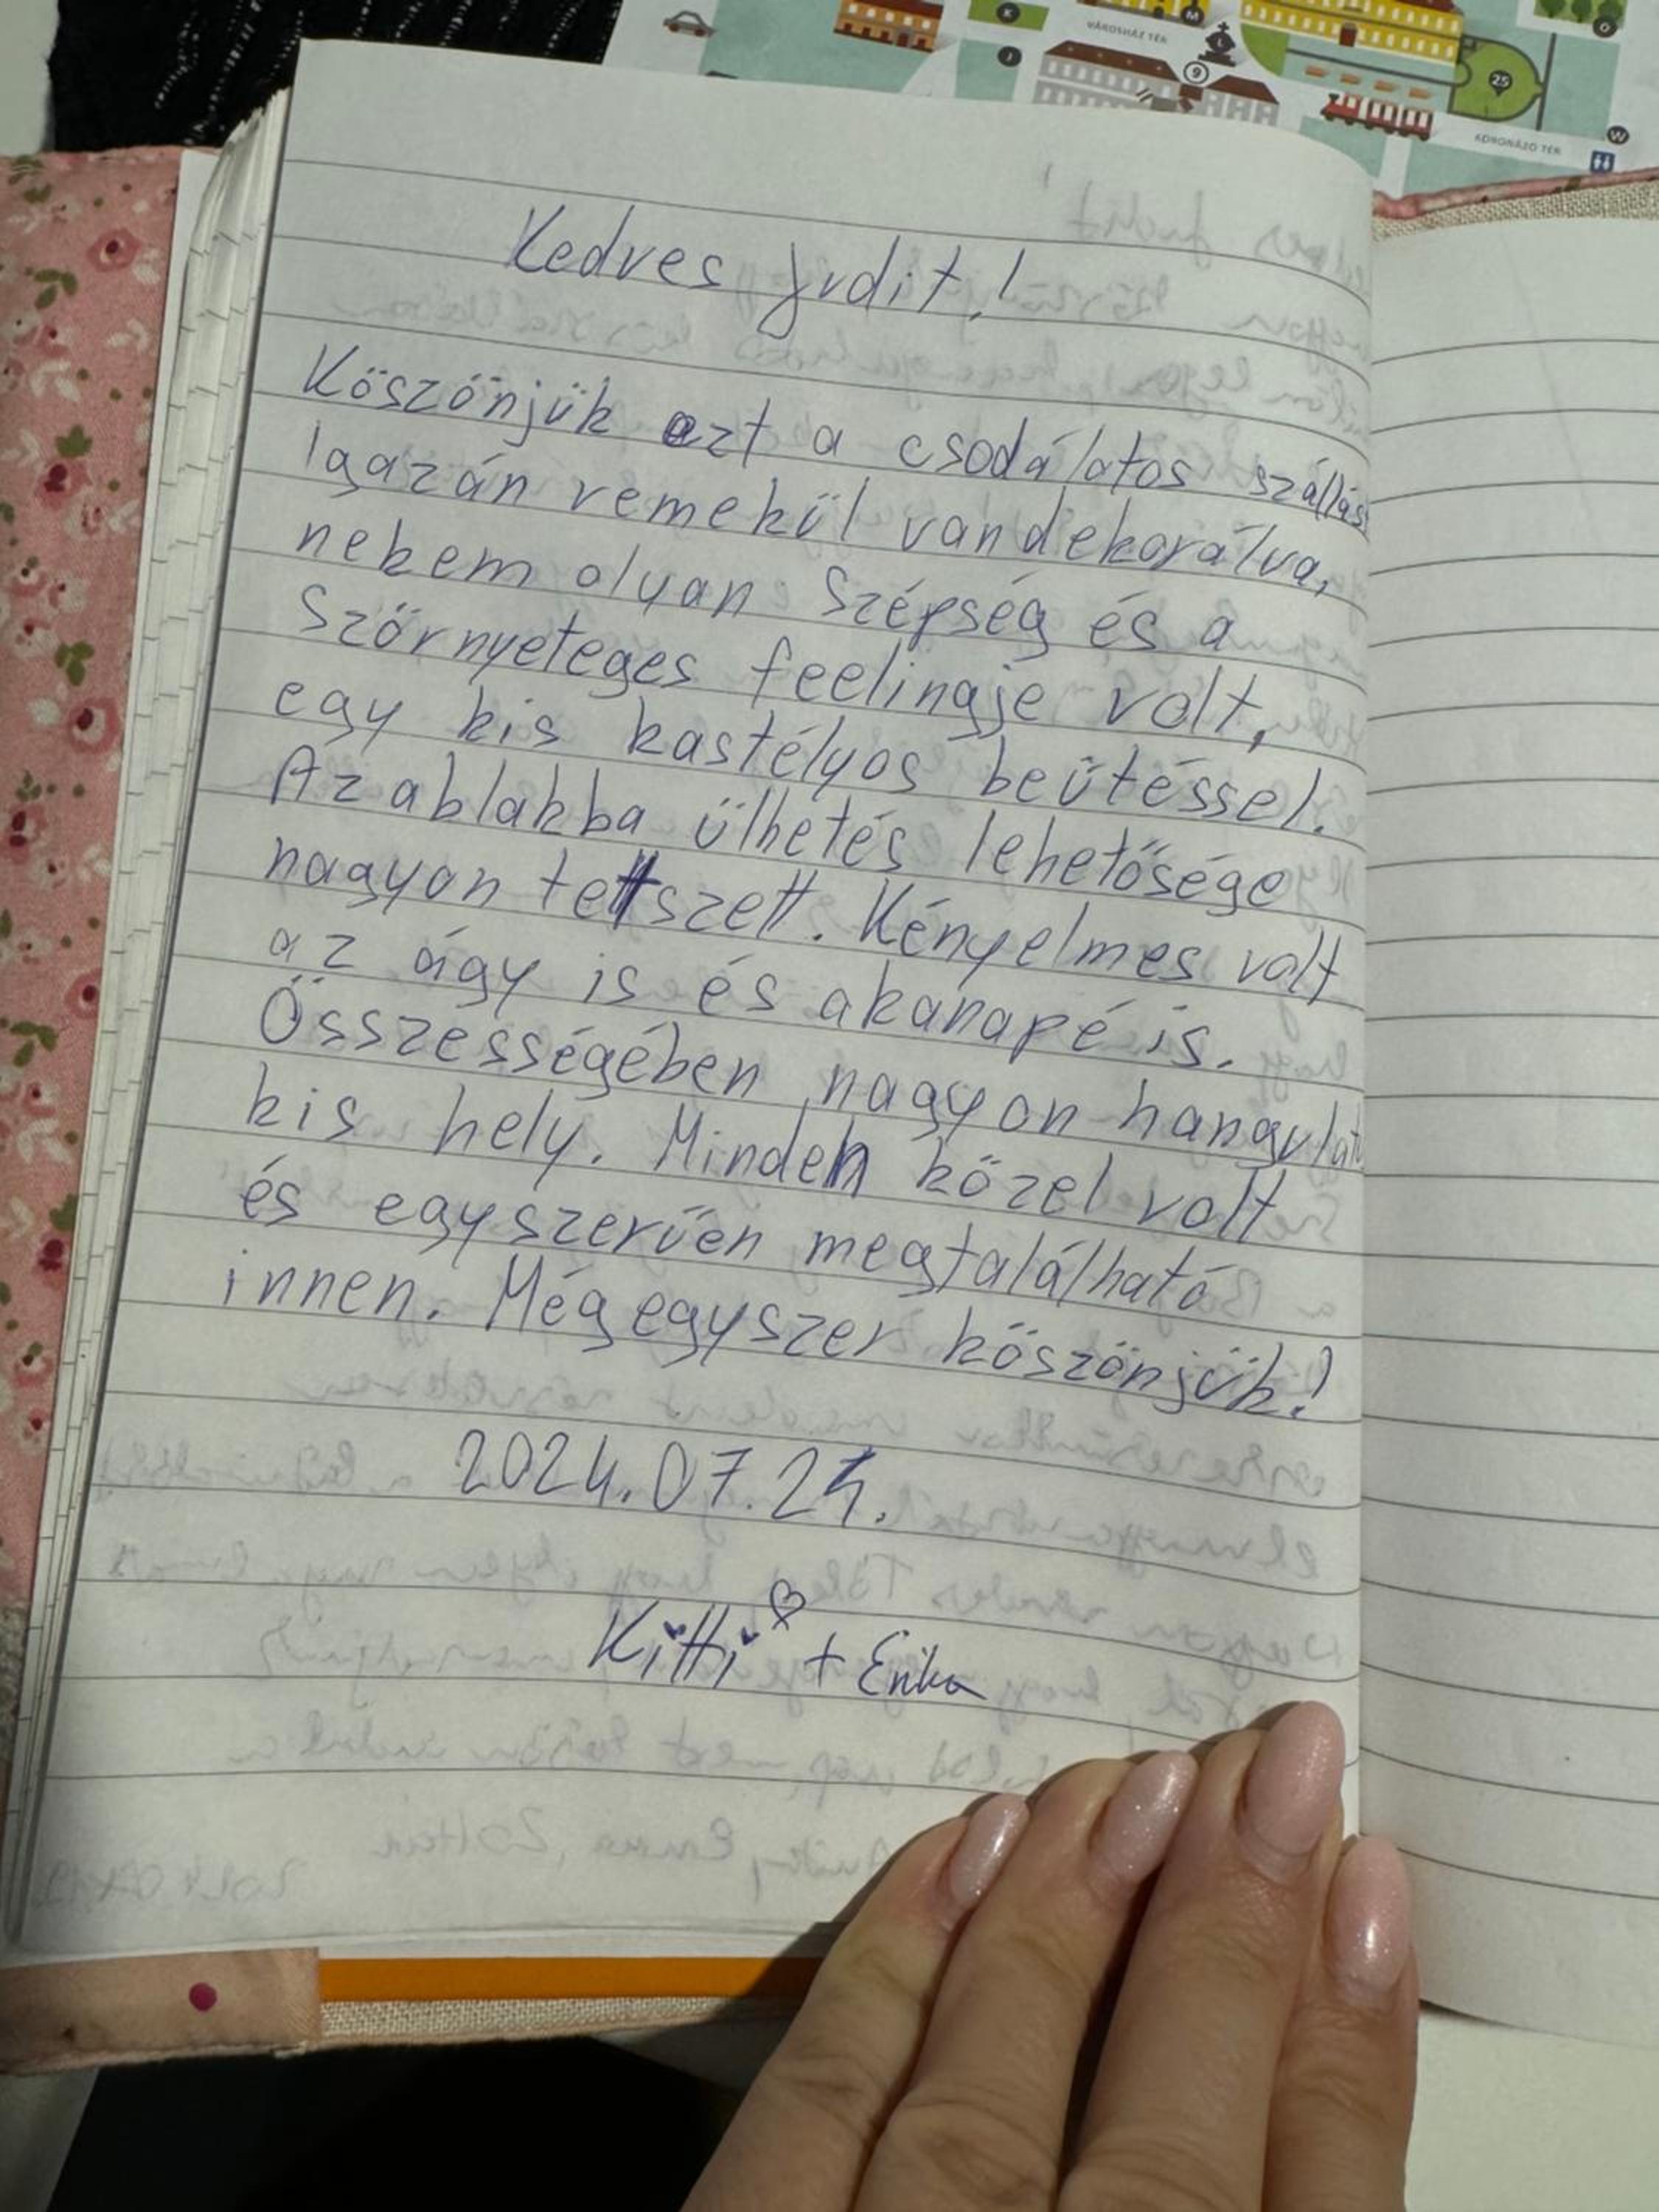 VÁROSHÁZ TÉR
K
M
J
L
9
25
O
W
KORONÁZÓ TÉR
Kedves Judit!
Köszönjük ezt a csodálatos szállás
Igazán remekül van dekorálva,
nekem olyan Szépség és a
Szörnyeteges feelingje volt,
egy kis kastélyos beütéssel.
Az ablakba ülhetés lehetősége
nagyon tettszett. Kényelmes volt
az ágy is és a kanapé is.
Összességében nagyon hangulat
kis hely. Minden közel volt
és egyszerűen megtalálható
innen. Még egyszer köszönjük!
2024.07.25.
Kitti + Erika